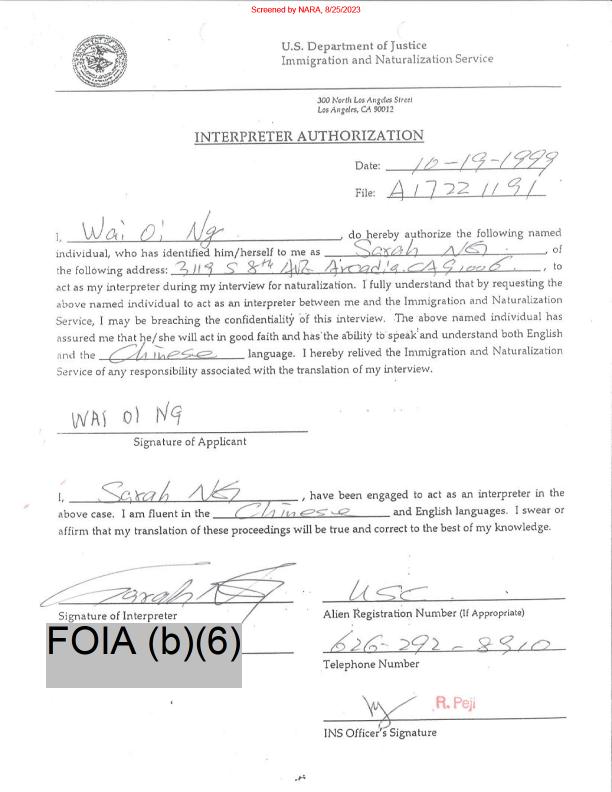 Screened by NARA, 8/25/2023
U.S. Department of Justice
Immigration and Naturalization Service
300 North Los Angeles Street
Los Angeles, CA 90012
INTERPRETER AUTHORIZATION
Date: 10-19-1999
File: A17221191
I, Wai Oi Ng, do hereby authorize the following named
individual, who has identified him/herself to me as Sarah NG, of
the following address: 3119 S 8th AVE Arcadia, CA 91006, to
act as my interpreter during my interview for naturalization. I fully understand that by requesting the
above named individual to act as an interpreter between me and the Immigration and Naturalization
Service, I may be breaching the confidentiality of this interview. The above named individual has
assured me that he/she will act in good faith and has the ability to speak and understand both English
and the Chinese language. I hereby relived the Immigration and Naturalization
Service of any responsibility associated with the translation of my interview.
WAI OI NG
Signature of Applicant
I, Sarah NG, have been engaged to act as an interpreter in the
above case. I am fluent in the Chinese and English languages. I swear or
affirm that my translation of these proceedings will be true and correct to the best of my knowledge.
Sarah NG USC
Signature of Interpreter Alien Registration Number (If Appropriate)
FOIA (b)(6) 626-292-8910
Telephone Number
R. Peji
INS Officer's Signature